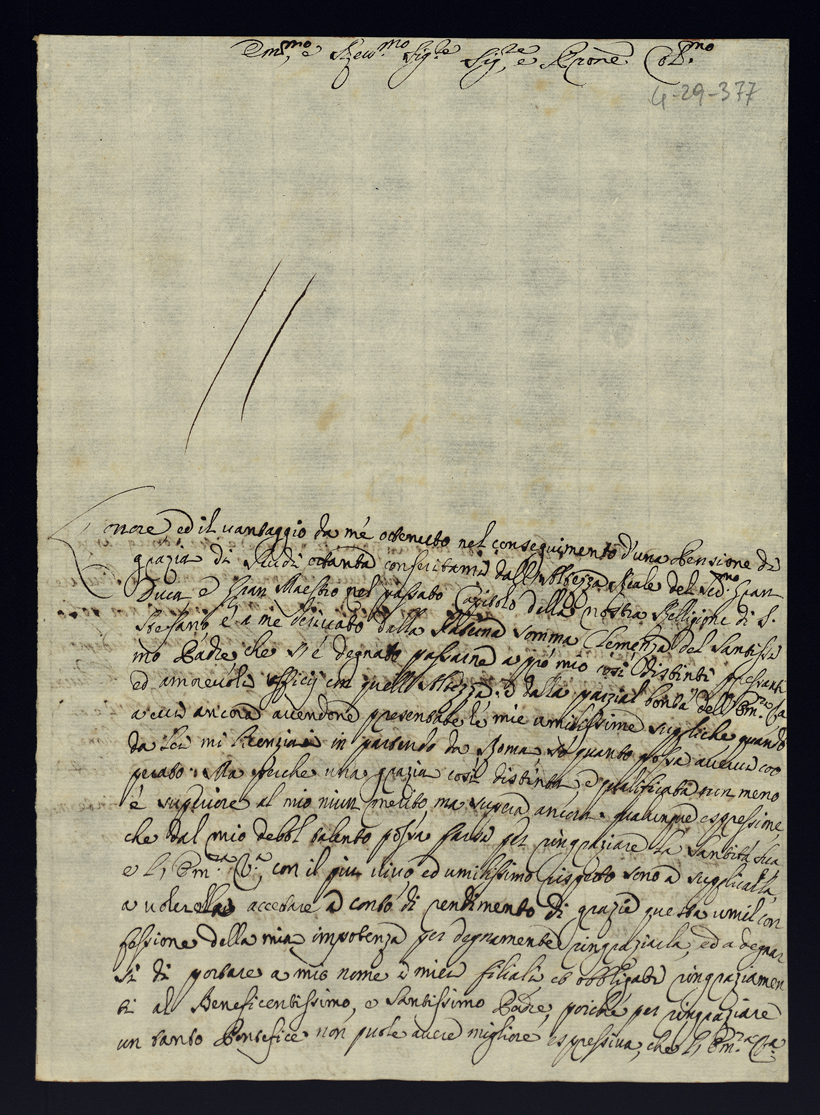 Em.mo e Rev.mo Sig.re Sig.re e Prone Col.mo
4-29-377
L'onore ed il vantaggio da mé ottenuto nel conseguimento d'una Pensione di
grazia di scudi ottanta conferitami dall'Altezza Reale del Ser.mo Gran
Duca e Gran Maestro nel passato Capitolo della nostra Religione di S.
Stefano é a me derivato dalla somma Clemenza del Santissi
mo Padre che s'é degnato passarne a pró mio cosí distinti, pressanti
ed amorevoli ufficij con quell'Altezza: e dalla parzial bontá dell'Em.za V.a
a cui ancora avendone presentate lé mie umilissime suppliche quando
da Lei mi licenziai in partendo da Roma, só quanto possa avervi coo
perato. Ma perche una grazia cosí distinta, e qualificata non meno
é superiore al mio niun merito, ma supera ancora qualunque espressione,
che dal mio debbl talento possa farsi per ringraziare la Santitá Sua
e L'Em.za V.a, con il piu vivo ed umilissimo rispetto sono a supplicarla,
a voler accettare a conto di rendimento di grazie questa umil con
fessione della mia impotenza per degnamente ringraziarla, ed a degnar
si di portare a mio nome i miei filiali, ed obbligati ringraziamen
ti al Beneficentissimo, e Santissimo Padre, poiche per ringraziare
un tanto Pontefice non puole avere migliore espressiva, che L'Em.za V.a